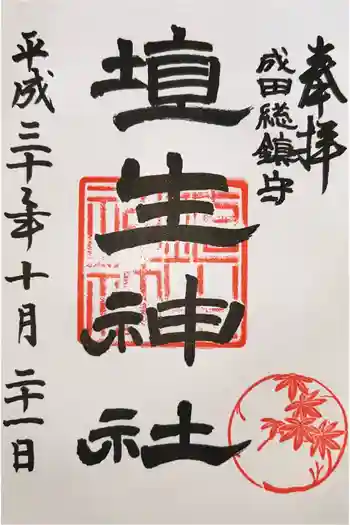 奉拝
成田総鎮守
埴生神社
平成三十年十月二十一日